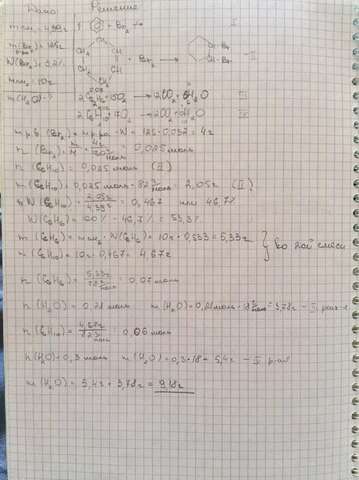 Дано
Решение
m см. = 4,39г
m р-ра(Br₂) = 125г
W(Br₂) = 3,2%
m см₂ = 10г
m(H₂O) - ?
+ Br₂ ≠> I
CH₂
CH₂ CH
CH₂ CH
CH₂
+ Br₂ → CH-Br
CH-Br - II
2C₆H₆ + 15O₂ → 12CO₂ + 6H₂O III
2C₆H₁₀ + 17O₂ → 12CO₂ + 10H₂O IV
m р.в. (Br₂) = m р-ра · W = 125 · 0,032 = 4г
n (Br₂) = m/M = 4г / 160 г/моль = 0,025 моль
n (C₆H₁₀) = 0,025 моль (II)
m (C₆H₁₀) = 0,025 моль · 82 г/моль = 2,05г (II)
W (C₆H₁₀) = 2,05г / 4,39г = 0,467 или 46,7%
W(C₆H₆) = 100% - 46,7% = 53,3%
m (C₆H₆) = m см₂ · W(C₆H₆) = 10г · 0,533 = 5,33г
m (C₆H₁₀) = 10г · 0,467 = 4,67г
} во 2ой смеси
n (C₆H₆) = 5,33г / 78 г/моль = 0,07 моль
n (H₂O) = 0,21 моль m (H₂O) = 0,21 моль · 18 г/моль = 3,78г - III р-ия
n (C₆H₁₀) = 4,67г / 82 г/моль = 0,06 моль
n (H₂O) = 0,3 моль m (H₂O) = 0,3 · 18 = 5,4г - IV р-ия
m (H₂O) = 5,4г + 3,78г = 9,18г